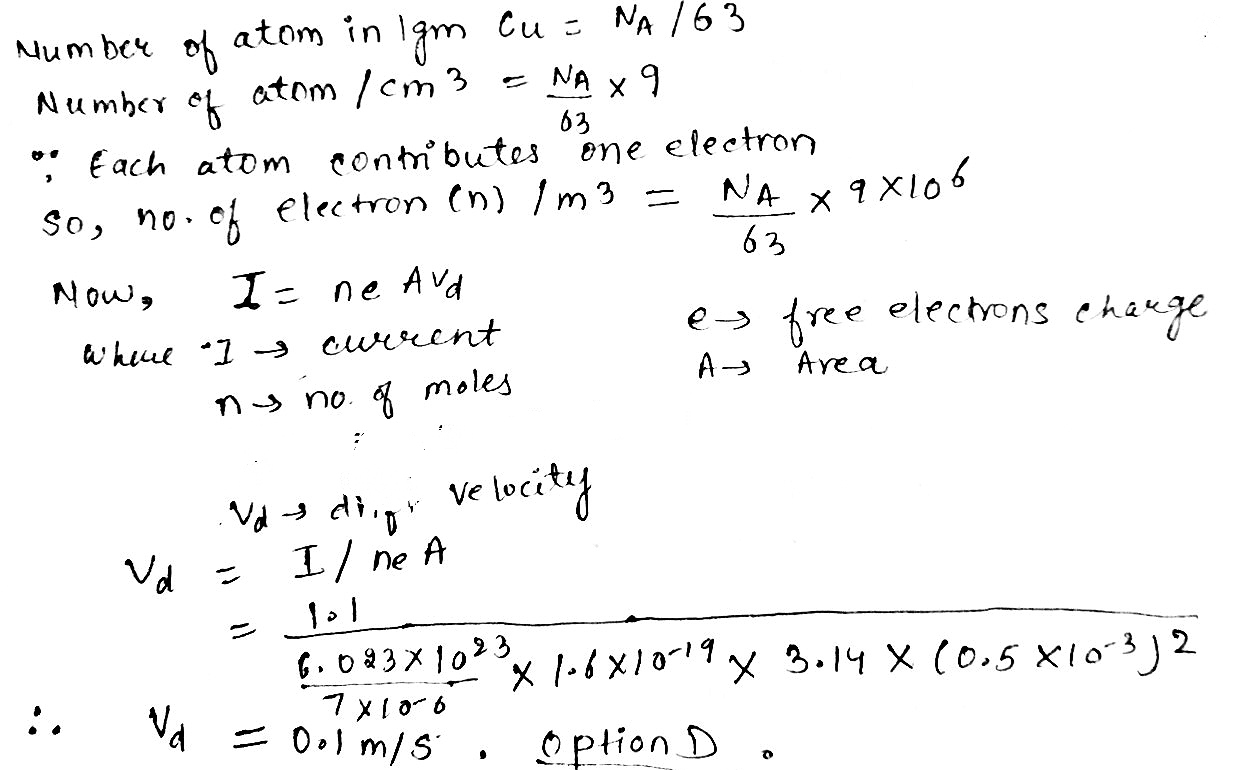 Number of atom in 1gm Cu = NA / 63
Number of atom / cm3 = NA/63 × 9
∵ Each atom contributes one electron
So, no. of electron (n) / m3 = NA/63 × 9 × 10^6
Now, I = ne AVd
where I → current e → free electrons charge
n → no. of moles A → Area
Vd → velocity
Vd = I / ne A
= 1.1 / (6.023 × 10^23 / 7 × 10^-6 × 1.6 × 10^-19 × 3.14 × (0.5 × 10^-3)^2)
∴ Vd = 0.1 m/s . Option D .